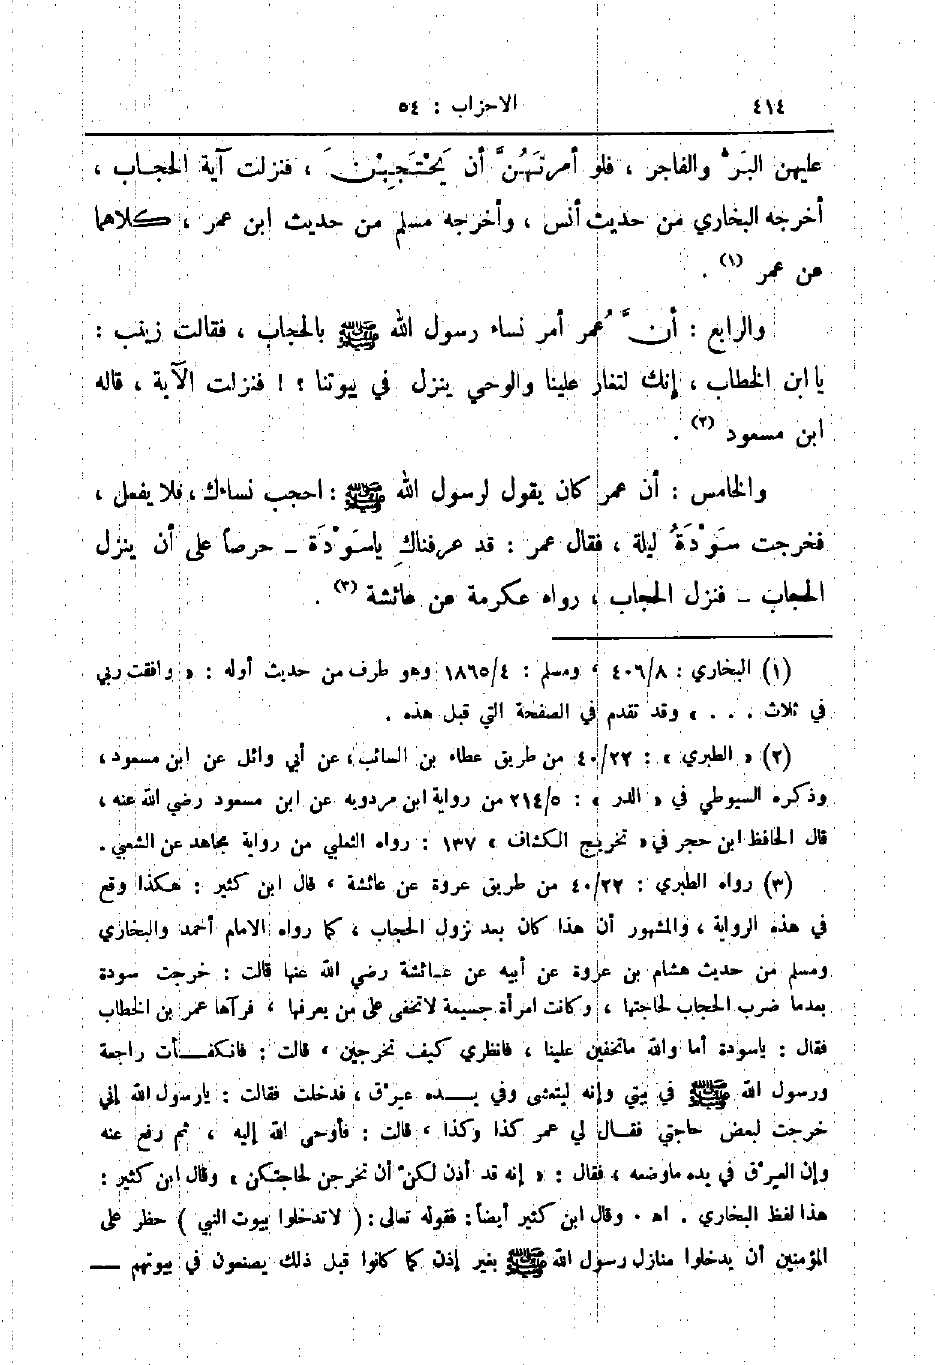 ٤١٤ الاحزاب : ٥٤
عليهن البَرُّ والفاجر ، فلو أمرتَهُنَّ أن يَحْتَجِبْنَ ، فنزلت آية الحجاب ،
أخرجه البخاري من حديث أنس ، وأخرجه مسلم من حديث ابن عمر ، كلاهما
عن عمر (١) .
والرابع : أنَّ عُمر أمر نساء رسول الله ﷺ بالحجاب ، فقالت زينب :
يا ابن الخطاب ، إنك لتغار علينا والوحي ينزل في بيوتنا ؟ ! فنزلت الآية ، قاله
ابن مسعود (٢) .
والخامس : أن عمر كان يقول لرسول الله ﷺ : احجب نساءك ، فلا يفعل ،
فخرجت سَوْدَةُ ليلة ، فقال عمر : قد عرفناكِ ياسَوْدَة - حرصاً على أن ينزل
الحجاب - فنزل الحجاب ، رواه عكرمة عن عائشة (٣) .
(١) البخاري : ٤٠٦/٨ ، ومسلم : ١٨٦٥/٤ وهو طرف من حديث أوله : « وافقت ربي
في ثلاث . . . » وقد تقدم في الصفحة التي قبل هذه .
(٢) « الطبري » : ٤٠/٢٢ من طريق عطاء بن السائب ، عن أبي وائل عن ابن مسعود ،
وذكره السيوطي في « الدر » : ٢١٤/٥ من رواية ابن مردويه عن ابن مسعود رضي الله عنه ،
قال الحافظ ابن حجر في « تخريج الكشاف » ١٣٧ : رواه الثعلبي من رواية مجاهد عن الشعبي .
(٣) رواه الطبري : ٤٠/٢٢ من طريق عروة عن عائشة ، قال ابن كثير : هكذا وقع
في هذه الرواية ، والمشهور أن هذا كان بعد نزول الحجاب ، كما رواه الامام أحمد والبخاري
ومسلم من حديث هشام بن عروة عن أبيه عن عائشة رضي الله عنها قالت : خرجت سودة
بعدما ضرب الحجاب لحاجتها ، وكانت امرأة جسيمة لاتخفى على من يعرفها ، فرآها عمر بن الخطاب
فقال : ياسودة أما والله ماتخفين علينا ، فانظري كيف تخرجين ، قالت : فانكفأت راجعة
ورسول الله ﷺ في بيتي وإنه ليتعشى وفي يده عرق ، فدخلت فقالت : يارسول الله إني
خرجت لبعض حاجتي فقال لي عمر كذا وكذا ، قالت : فأوحى الله إليه ، ثم رفع عنه
وإن العرق في يده ماوضعه ، فقال : « إنه قد أذن لكن أن تخرجن لحاجتكن » وقال ابن كثير :
هذا لفظ البخاري . اهـ . وقال ابن كثير أيضاً : فقوله تعالى : ( لاتدخلوا بيوت النبي ) حظر على
المؤمنين أن يدخلوا منازل رسول الله ﷺ بغير إذن كما كانوا قبل ذلك يصنعون في بيوتهم —